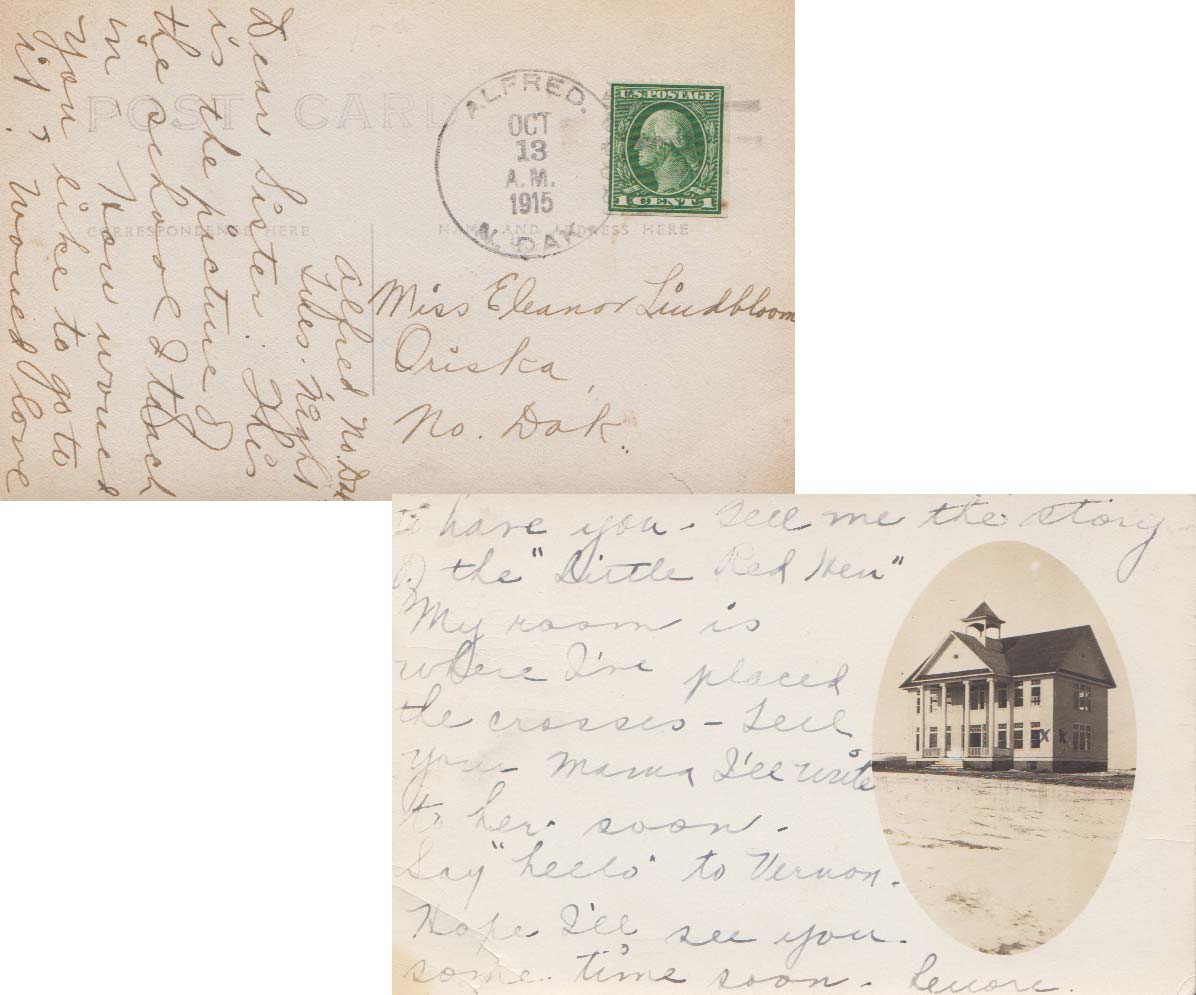 POST CARD
CORRESPONDENCE HERE
NAME AND ADDRESS HERE
ALFRED.
OCT
13
A.M.
1915
N. DAK.
U.S. POSTAGE
1 CENT 1
Miss Eleanor Lindbloom
Oriska,
No. Dak.
Alfred No. Dak
Tues. Night
Dear Sister: This
is the picture of
the school I teach
in. How would
you like to go to
it? Would love
to have you. Tell me the story
of the "Little Red Hen"
My room is
where I've placed
the crosses - Tell
your Mama I'll write
to her soon.
Say "hello" to Vernon.
Hope I'll see you
some time soon. Lenore.
X X